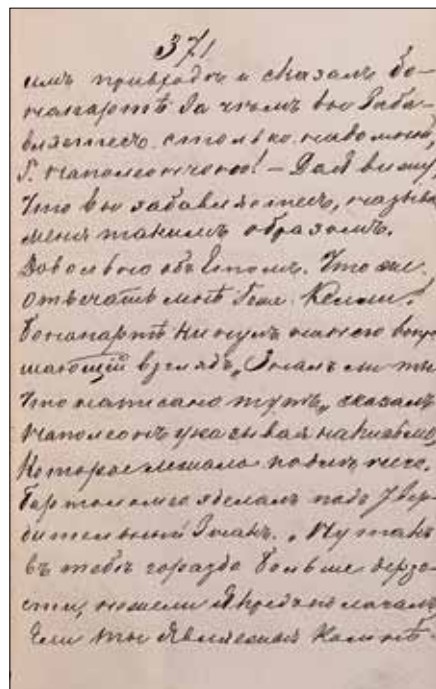 371
имъ привходъ и сказалъ Бо-
напартъ За чѣмъ вы Заба-
вляетесь столько надо мной,
Г. Наполеонъ
Что вы забавляетесь, называя
меня такимъ образомъ.
Довольно объ Етомъ. Что же
отвѣчать мнѣ Ген. Келли?
Бонапартъ кинулъ на него
взглядъ „Зналъ ли ты
Что написано тутъ„ сказалъ
Наполеонъ указывая на письмо,
Которое лежало подлѣ него.
Бартоломео здѣлалъ
Знакъ. „Ну такъ
въ тебѣ гораздо больше дерзо-
сти, нежели Я предполагалъ
Ели ты Являешься Ко мнѣ